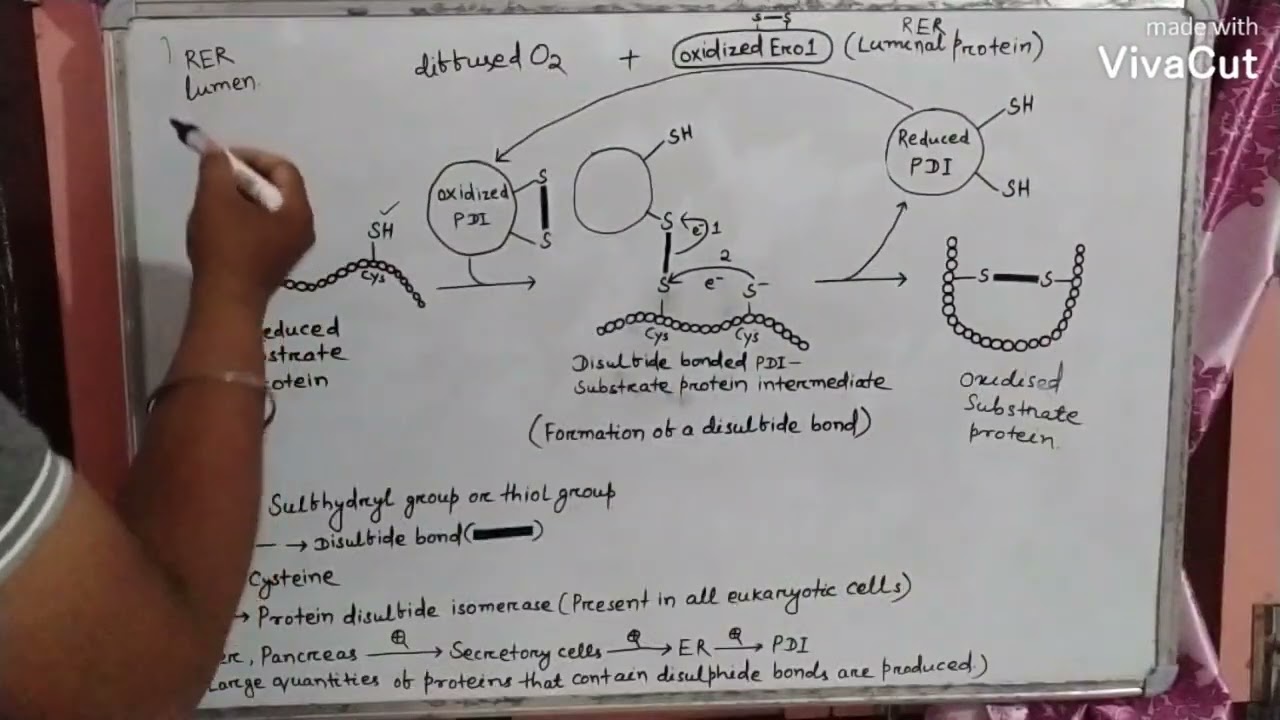 made with
VivaCut
RER
lumen.
diffused O2 + oxidized Ero1 (Lumenal protein)
S—S
RER
SH
Cys
oxidized
PDI
S
S
SH
S
e⁻ 1
2
S
e⁻
S⁻
Cys
Cys
Reduced
PDI
SH
SH
S
S
educed
strate
otein
Disulfide bonded PDI–
Substrate protein intermediate
(Formation of a disulfide bond)
Oxidised
Substrate
protein.
Sulfhydryl group or thiol group
— → Disulfide bond( )
Cysteine
→ Protein disulfide isomerase (Present in all eukaryotic cells)
er, Pancreas ⊕→ Secretory cells ⊕→ ER ⊕→ PDI
Large quantities of proteins that contain disulphide bonds are produced.)